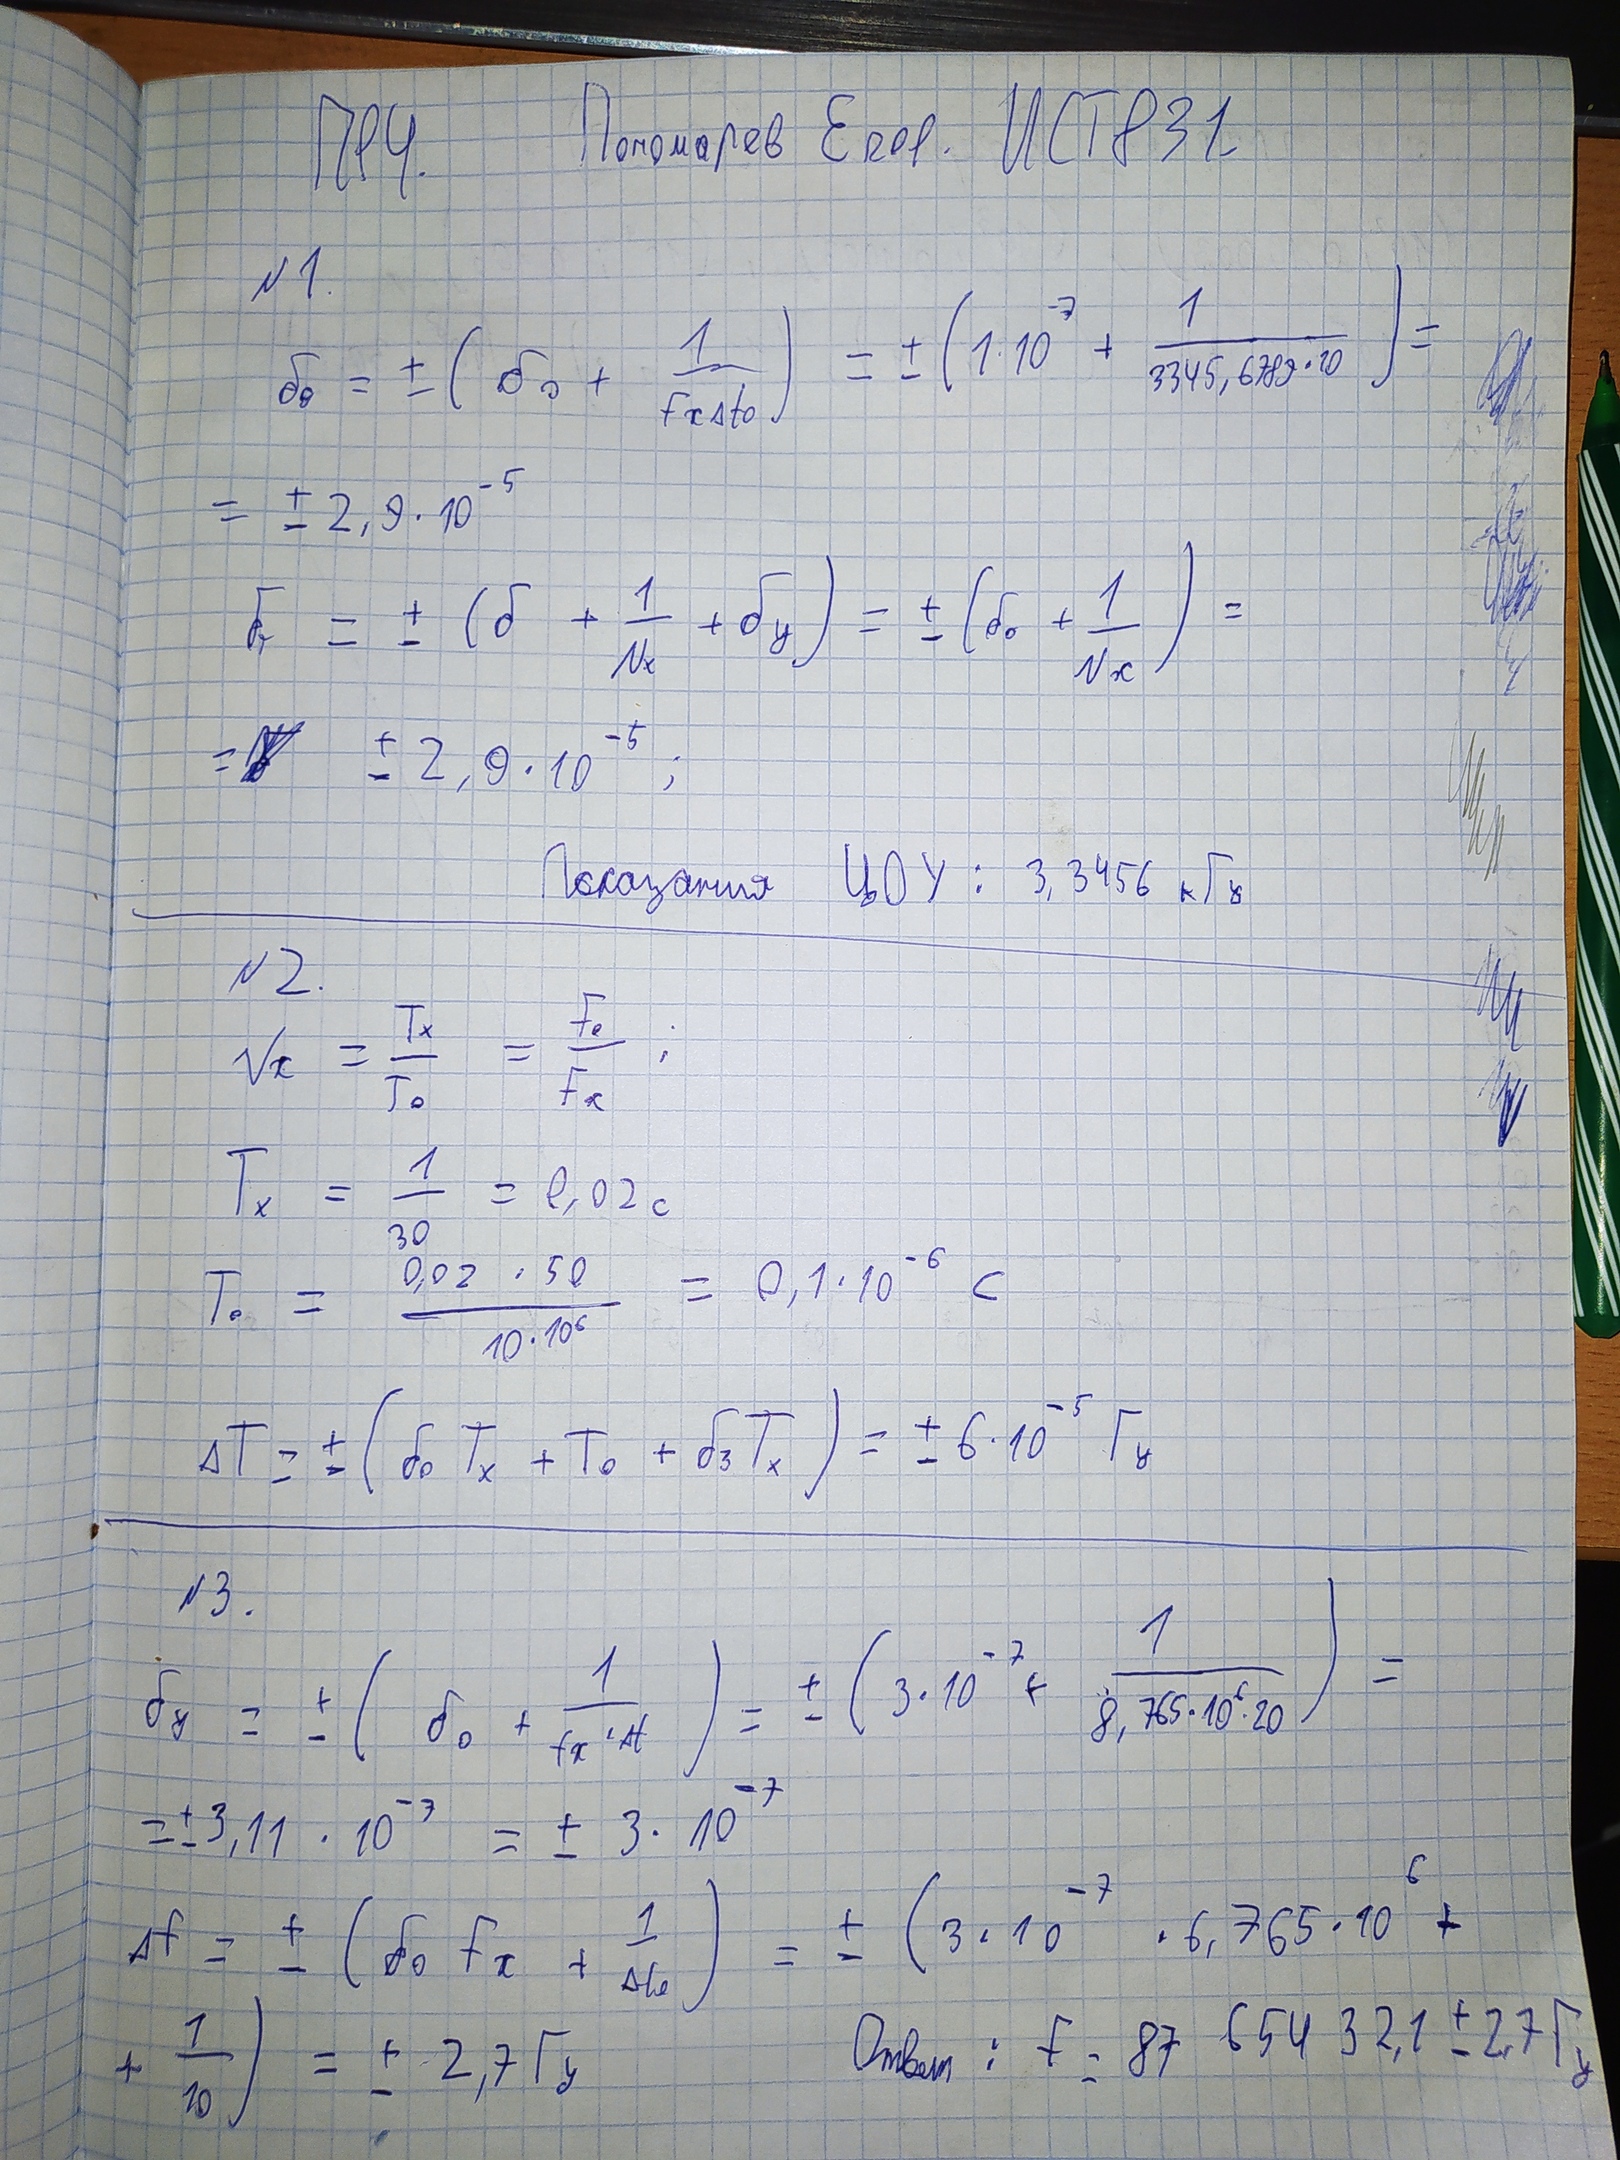 ПР4. Пономарев Егор. ИСТ831
N1.
δ₀ = ± (δ₀ + 1/(fxΔt₀)) = ± (1·10⁻⁷ + 1/(3345,6789·10)) =
= ± 2,9·10⁻⁵
δт = ± (δ + 1/Nx + δy) = ± (δ₀ + 1/Nx) =
= ± 2,9·10⁻⁵;
Показания ЦОУ: 3,3456 кГц
N2.
Nx = Tx/T₀ = F₀/Fx;
Tx = 1/30 = 0,02 с
T₀ = (0,02 · 50)/(10·10⁶) = 0,1·10⁻⁶ с
ΔT = ± (δ₀ Tx + T₀ + δз Tx) = ± 6·10⁻⁵ Гц
N3.
δy = ± (δ₀ + 1/(fx·Δt)) = ± (3·10⁻⁷ + 1/(8,765·10⁶·20)) =
= ± 3,11 · 10⁻⁷ = ± 3·10⁻⁷
Δf = ± (δ₀ fx + 1/Δt₀) = ± (3·10⁻⁷ · 6,765·10⁶ +
+ 1/10) = ± 2,7 Гц Ответ: f = 87 654 32,1 ± 2,7 Гц